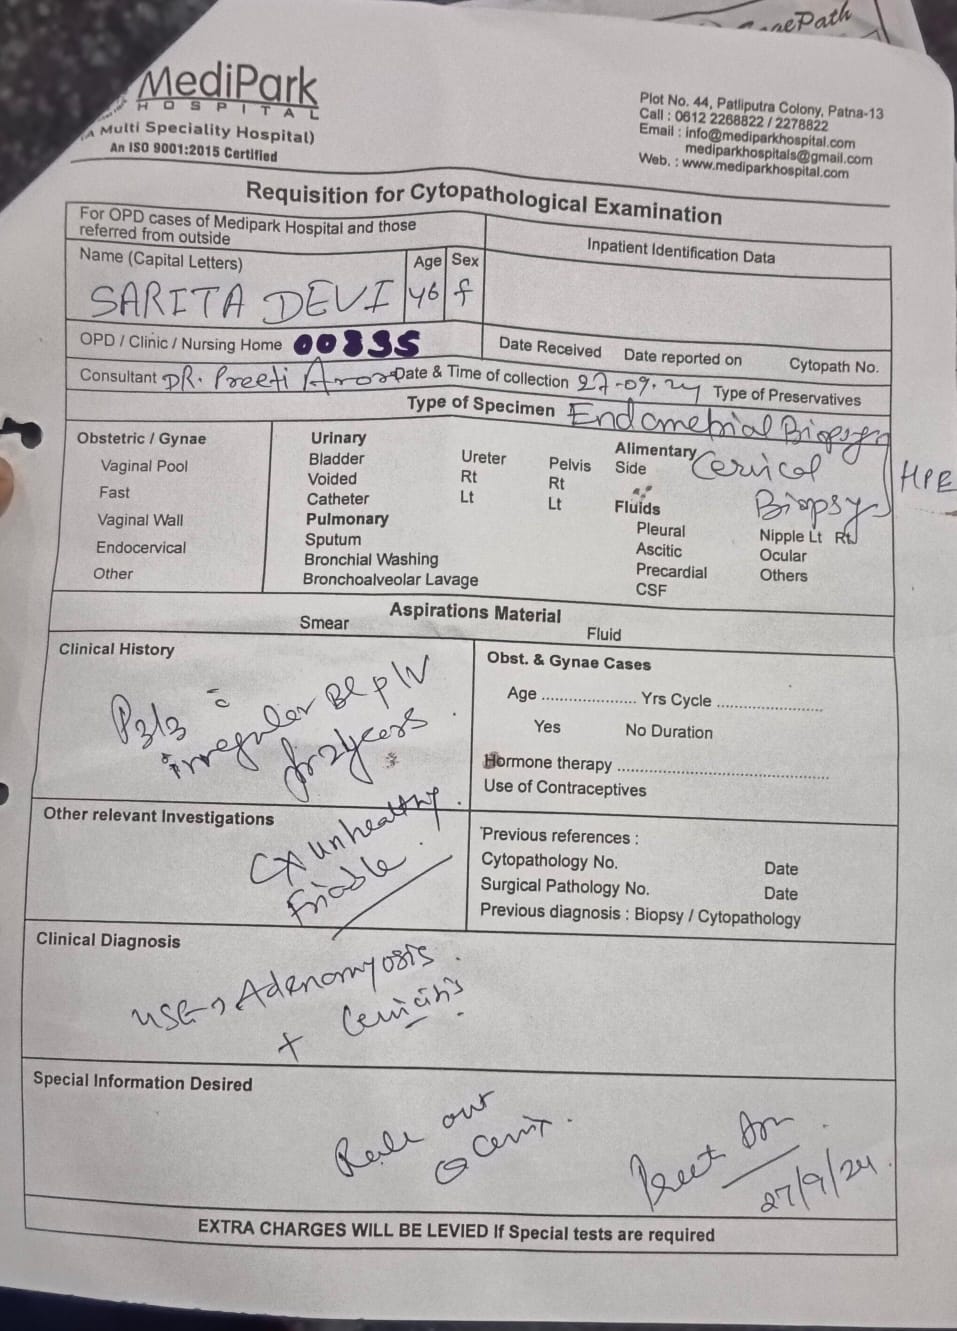 GenePath
MediPark
HOSPITAL
(A Multi Speciality Hospital)
An ISO 9001:2015 Certified
Plot No. 44, Patliputra Colony, Patna-13
Call : 0612 2268822 / 2278822
Email : info@mediparkhospital.com
mediparkhospitals@gmail.com
Web. : www.mediparkhospital.com
Requisition for Cytopathological Examination
For OPD cases of Medipark Hospital and those
referred from outside
Inpatient Identification Data
Name (Capital Letters) Age Sex
SARITA DEVI 46 f
OPD / Clinic / Nursing Home 00335
Date Received Date reported on Cytopath No.
Consultant DR. Preeti Arora Date & Time of collection 27-09-24 Type of Preservatives
Type of Specimen Endometrial Biopsy
Cervical
Biopsy
HPE
Obstetric / Gynae
Vaginal Pool
Fast
Vaginal Wall
Endocervical
Other
Urinary
Bladder Ureter Pelvis
Voided Rt Rt
Catheter Lt Lt
Pulmonary
Sputum
Bronchial Washing
Bronchoalveolar Lavage
Alimentary
Side
Fluids
Pleural Nipple Lt Rt
Ascitic Ocular
Precardial Others
CSF
Aspirations Material
Smear Fluid
Clinical History
P3L3 c̄
irregular Bl p/v
for 2years.
Obst. & Gynae Cases
Age .................... Yrs Cycle ......................
Yes No Duration
Hormone therapy ............................................
Use of Contraceptives
Other relevant Investigations
CX unhealthy.
Friable.
Previous references :
Cytopathology No. Date
Surgical Pathology No. Date
Previous diagnosis : Biopsy / Cytopathology
Clinical Diagnosis
USG → Adenomyosis.
+ Cervicitis.
Special Information Desired
Rule out
Cervix.
Preeti
27/9/24.
EXTRA CHARGES WILL BE LEVIED If Special tests are required